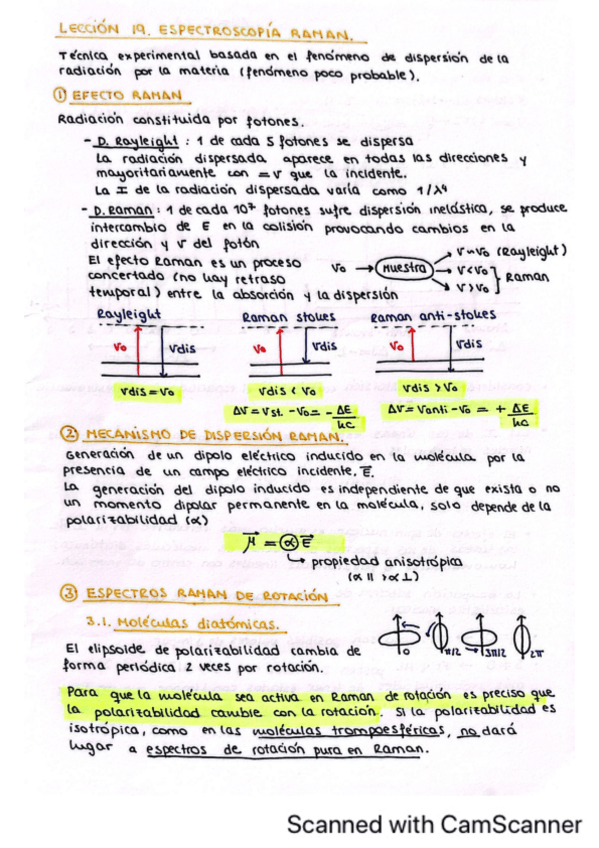 LECCIÓN 19. ESPECTROSCOPÍA RAMAN.
Técnica experimental basada en el fenómeno de dispersión de la
radiación por la materia (fenómeno poco probable).
① EFECTO RAMAN
Radiación constituida por fotones.
- D. Rayleight : 1 de cada 5 fotones se dispersa
La radiación dispersada aparece en todas las direcciones y
mayoritariamente con = ν que la incidente.
La I de la radiación dispersada varía como 1/λ⁴
- D. Raman : 1 de cada 10⁷ fotones sufre dispersión inelástica, se produce
intercambio de E en la colisión provocando cambios en la
dirección y ν del fotón
El efecto Raman es un proceso
concertado (no hay retraso
temporal) entre la absorción y la dispersión
ν₀ → Muestra → ν~ν₀ (Rayleight)
ν<ν₀
ν>ν₀ ] Raman
Rayleight Raman stokes Raman anti-stokes
ν₀ νdis ν₀ νdis ν₀ νdis
νdis = ν₀ νdis < ν₀ νdis > ν₀
Δν = νst. - ν₀ = - ΔE/hc Δν = νanti - ν₀ = + ΔE/hc
② MECANISMO DE DISPERSIÓN RAMAN.
Generación de un dipolo eléctrico inducido en la molécula por la
presencia de un campo eléctrico incidente, E⃗.
La generación del dipolo inducido es independiente de que exista o no
un momento dipolar permanente en la molécula, solo depende de la
polarizabilidad (α)
μ⃗ = α E⃗
↳ propiedad anisotrópica
(α∥ > α⊥)
③ ESPECTROS RAMAN DE ROTACIÓN
3.1. Moléculas diatómicas.
0 π/2 3π/2 2π
El elipsolde de polarizabilidad cambia de
forma periódica 2 veces por rotación.
Para que la molécula sea activa en Raman de rotación es preciso que
la polarizabilidad cambie con la rotación. Si la polarizabilidad es
isotrópica, como en las moléculas trompoesféricas, no dará
lugar a espectros de rotación pura en Raman.
Scanned with CamScanner